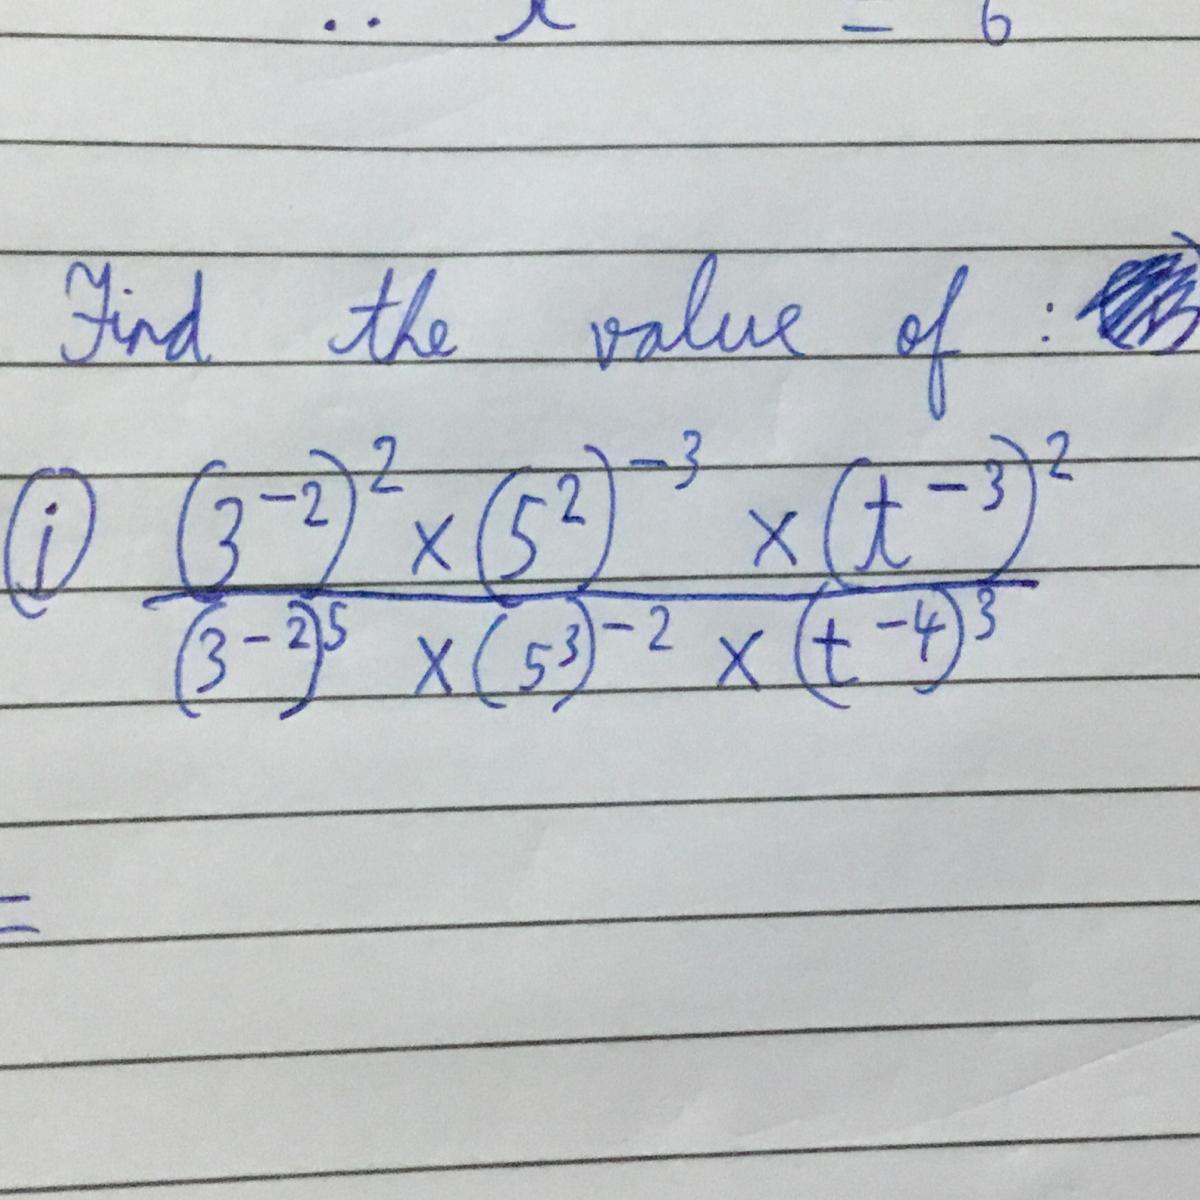 ∴ x = 6
Find the value of :
(i) (3⁻²)² × (5²)⁻³ × (t⁻³)²
(3⁻²)⁵ × (5³)⁻² × (t⁻⁴)³
=